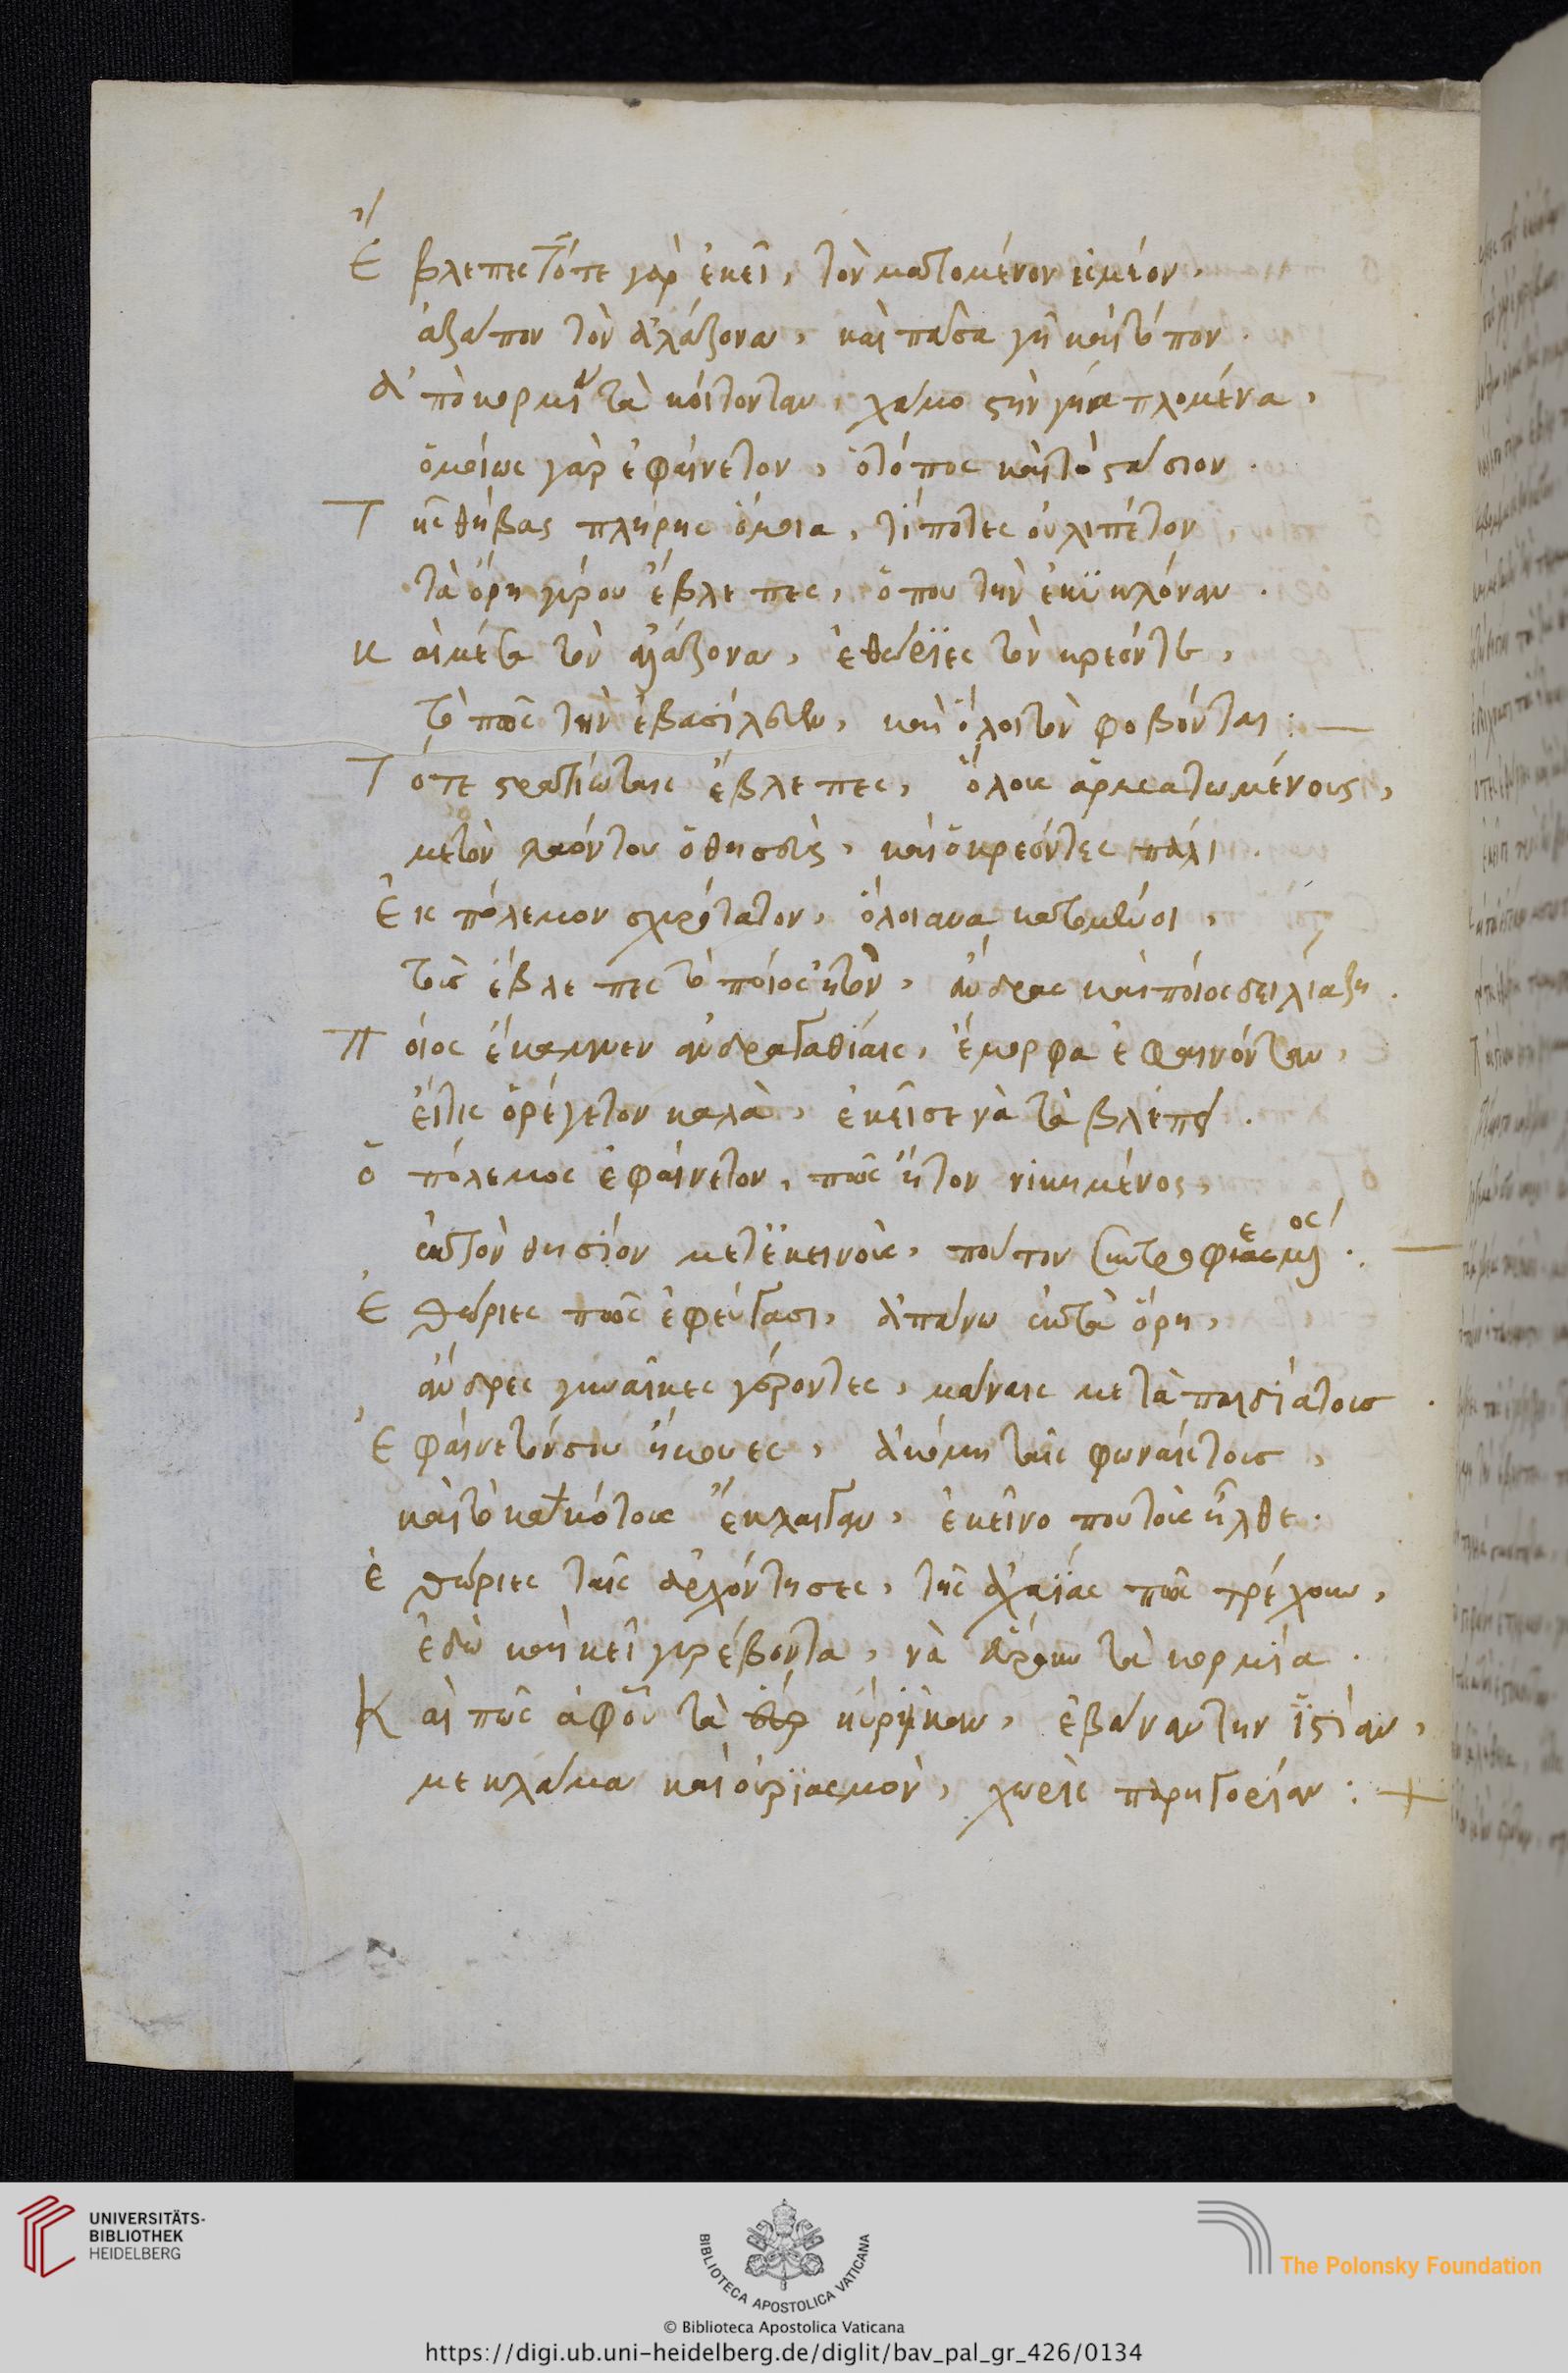 Ἔβλεπες τότε γὰρ ἐκεῖ, τὸν ματομένον
ἀξάπον τὸν ἀλάζοναν, καὶ πᾶσα γῆ καὶ τόπον.
Ἀπὸ κορμιὰν τὰ κόιτονταν, χάμο στὴν γῆν ἁπλομένα,
ὁμοίως γὰρ ἐφαίνετον, ὁ τόπος καὶ τὸ στάσιον.
Τῆς θήβας πλήρης ὅμοια, τίποτες οὐ λιπέτον,
τὰ ὄρη γύρου ἔβλεπες, ὅπου τὴν ἐκϋκλόναν.
Καὶ μέσα τὸν ἀλάζοναν, ἐθώριες τὸν κρεόντε,
τὸ πῶς τὴν ἐβασίλευεν, καὶ ὅλοι τὸν φοβόνται :—
Τότε στρατιώταις ἔβλεπες, ὅλους ἀρμεατωμένους,
μετὸν λαόν του ὁ θησεὺς, καὶ ὁ κρεόντες πάλι.
Εἰς πόλεμον σχιρότατον, ὅλοι
τοῖς ἔβλεπες τὸ ποῖος ἦτον, ἄνδρας καὶ ποῖος δειλιάζη.
Ποῖος ἔκαμνεν ἀνδραγαθίαις, ἔμορφα ἐφαινόνταν,
εἴτις ὀρέγετον καλὰ, ἐκεῖσε νὰ τὰ βλέπῃ.
Ὁ πόλεμος ἐφαίνετον, πῶς ἦτον νικημένος,
ἐκ τὸν θησίον μετ' ἐκεινοὺς, πού τον :—
Ἐθώριες πῶς ἐφεύγασι, ἀπάνω εἰς τὰ ὄρη,
ἄνδρες γυναῖκες γέροντες, μάναις με τὰ παιδιά τους.
Ἐφαίνετόν σου ἤκουες, ἀκόμη ταῖς φωναίς τους,
καὶ τὸ κακόν τους ἔκλαιγαν, ἐκεῖνο που τοὺς ἦλθε.
Ἐθώριες ταῖς ἀρχόντησες, τῆς ἀχαΐας πῶς τρέχουν,
ἐδῶ καὶ κεῖ γυρέβοντα, νὰ εὕρουν τὰ κορμία.
Καὶ πῶς ἀφοῦ τὰ ηὑρίκαν, ἐβάναν την ἱστίαν,
με κλάμαν καὶ οὐριασμὸν, χωρὶς παρηγορίαν : +
UNIVERSITÄTS-
BIBLIOTHEK
HEIDELBERG
BIBLIOTECA APOSTOLICA VATICANA
The Polonsky Foundation
© Biblioteca Apostolica Vaticana
https://digi.ub.uni-heidelberg.de/diglit/bav_pal_gr_426/0134